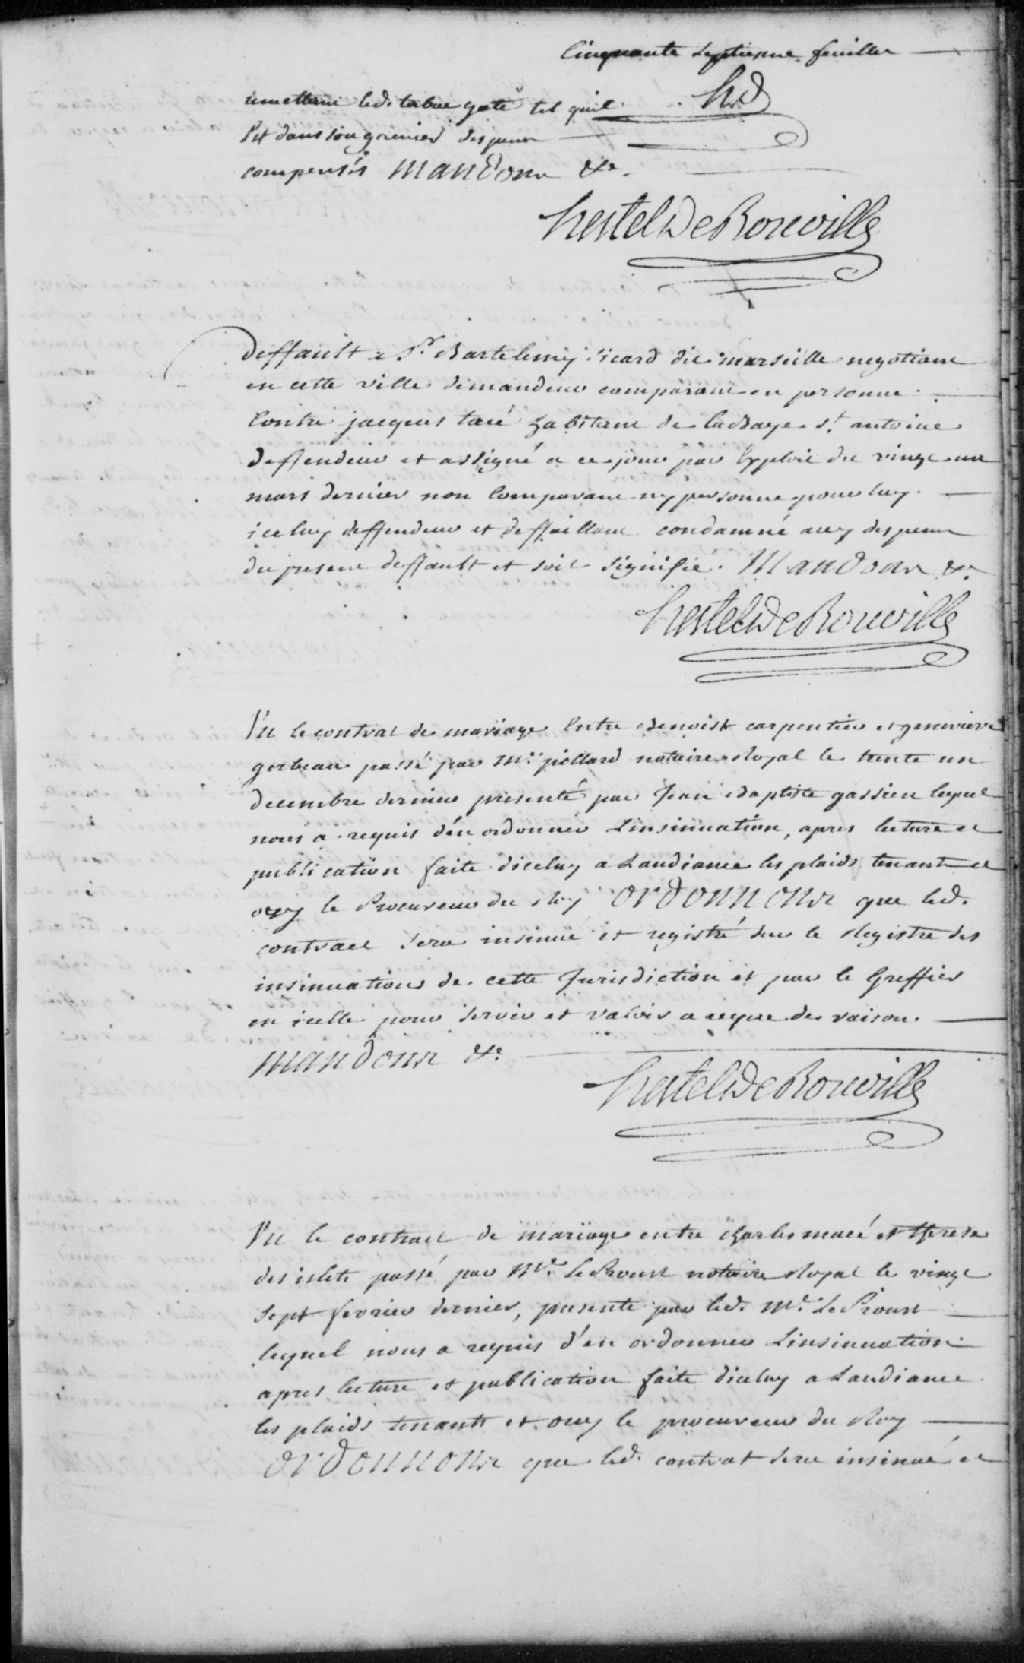 Cinquante Septieme feuillet
hd
remettant led. tabac gaté tel quil
Est dans son grenier depens
compensés Mandons &c.
hertel De Rouville
deffault a Sr. Bartelemy icard dit marseille negotiant
en cette ville demandeur comparant en personne
Contre jacques taré habitant de la Baye St. antoine
deffendeur et assigné a ce jour par Exploit du vingt un
mars dernier non Comparant ny personne pour luy
iceluy deffendeur et deffaillant condamné aux depens
du present deffault et soit signifié. Mandons &c.
hertel De Rouville
Vu le contrat de mariage Entre Benoist carpentier et genevieve
gorbeau passé par Me. pillard notaire Royal le trente un
decembre dernier presenté par Jean Baptiste gassien lequel
nous a requis d'en ordonner Linsinuation, apres lecture et
publication faite diceluy a Laudiance les plaids tenant et
ouy le Procureur du Roy ordonnons que led.
contract sera insinué et registré sur le Registre des
insinuations de cette Jurisdiction et par le Greffier
en icelle pour servir et valoir a ce que de raison.
Mandons &c.
hertel De Rouville
Vu le contract de mariage entre charles macé et therese
desilets passé par Me. Le Proust notaire Royal le vingt
sept fevrier dernier, presenté par led. Me. Le Proust
lequel nous a requis d'en ordonner Linsinuation
apres lecture et publication faite diceluy a Laudiance
les plaids tenants et ouy le procureur du Roy
Ordonnons que led. contrat sera insinué et